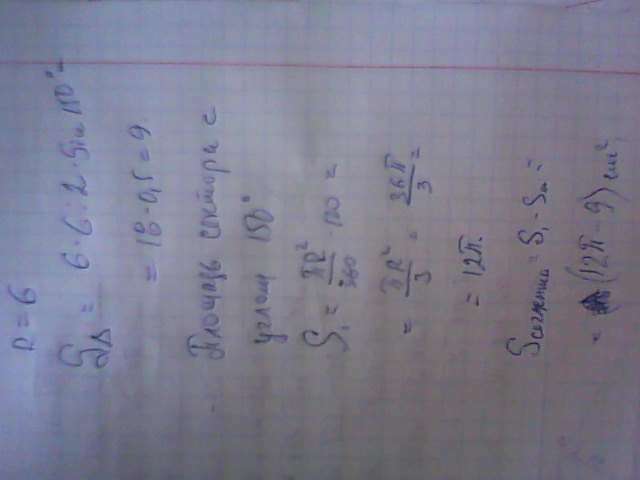 R = 6
S△ = 6·6:2·Sin 150° =
= 18·0,5 = 9
Площадь сектора с
углом 150°
S₁ = πR²/360 · 120 =
= πR²/3 = 36π/3 =
= 12π.
Sсегмента = S₁ - S△ =
= (12π - 9) см²